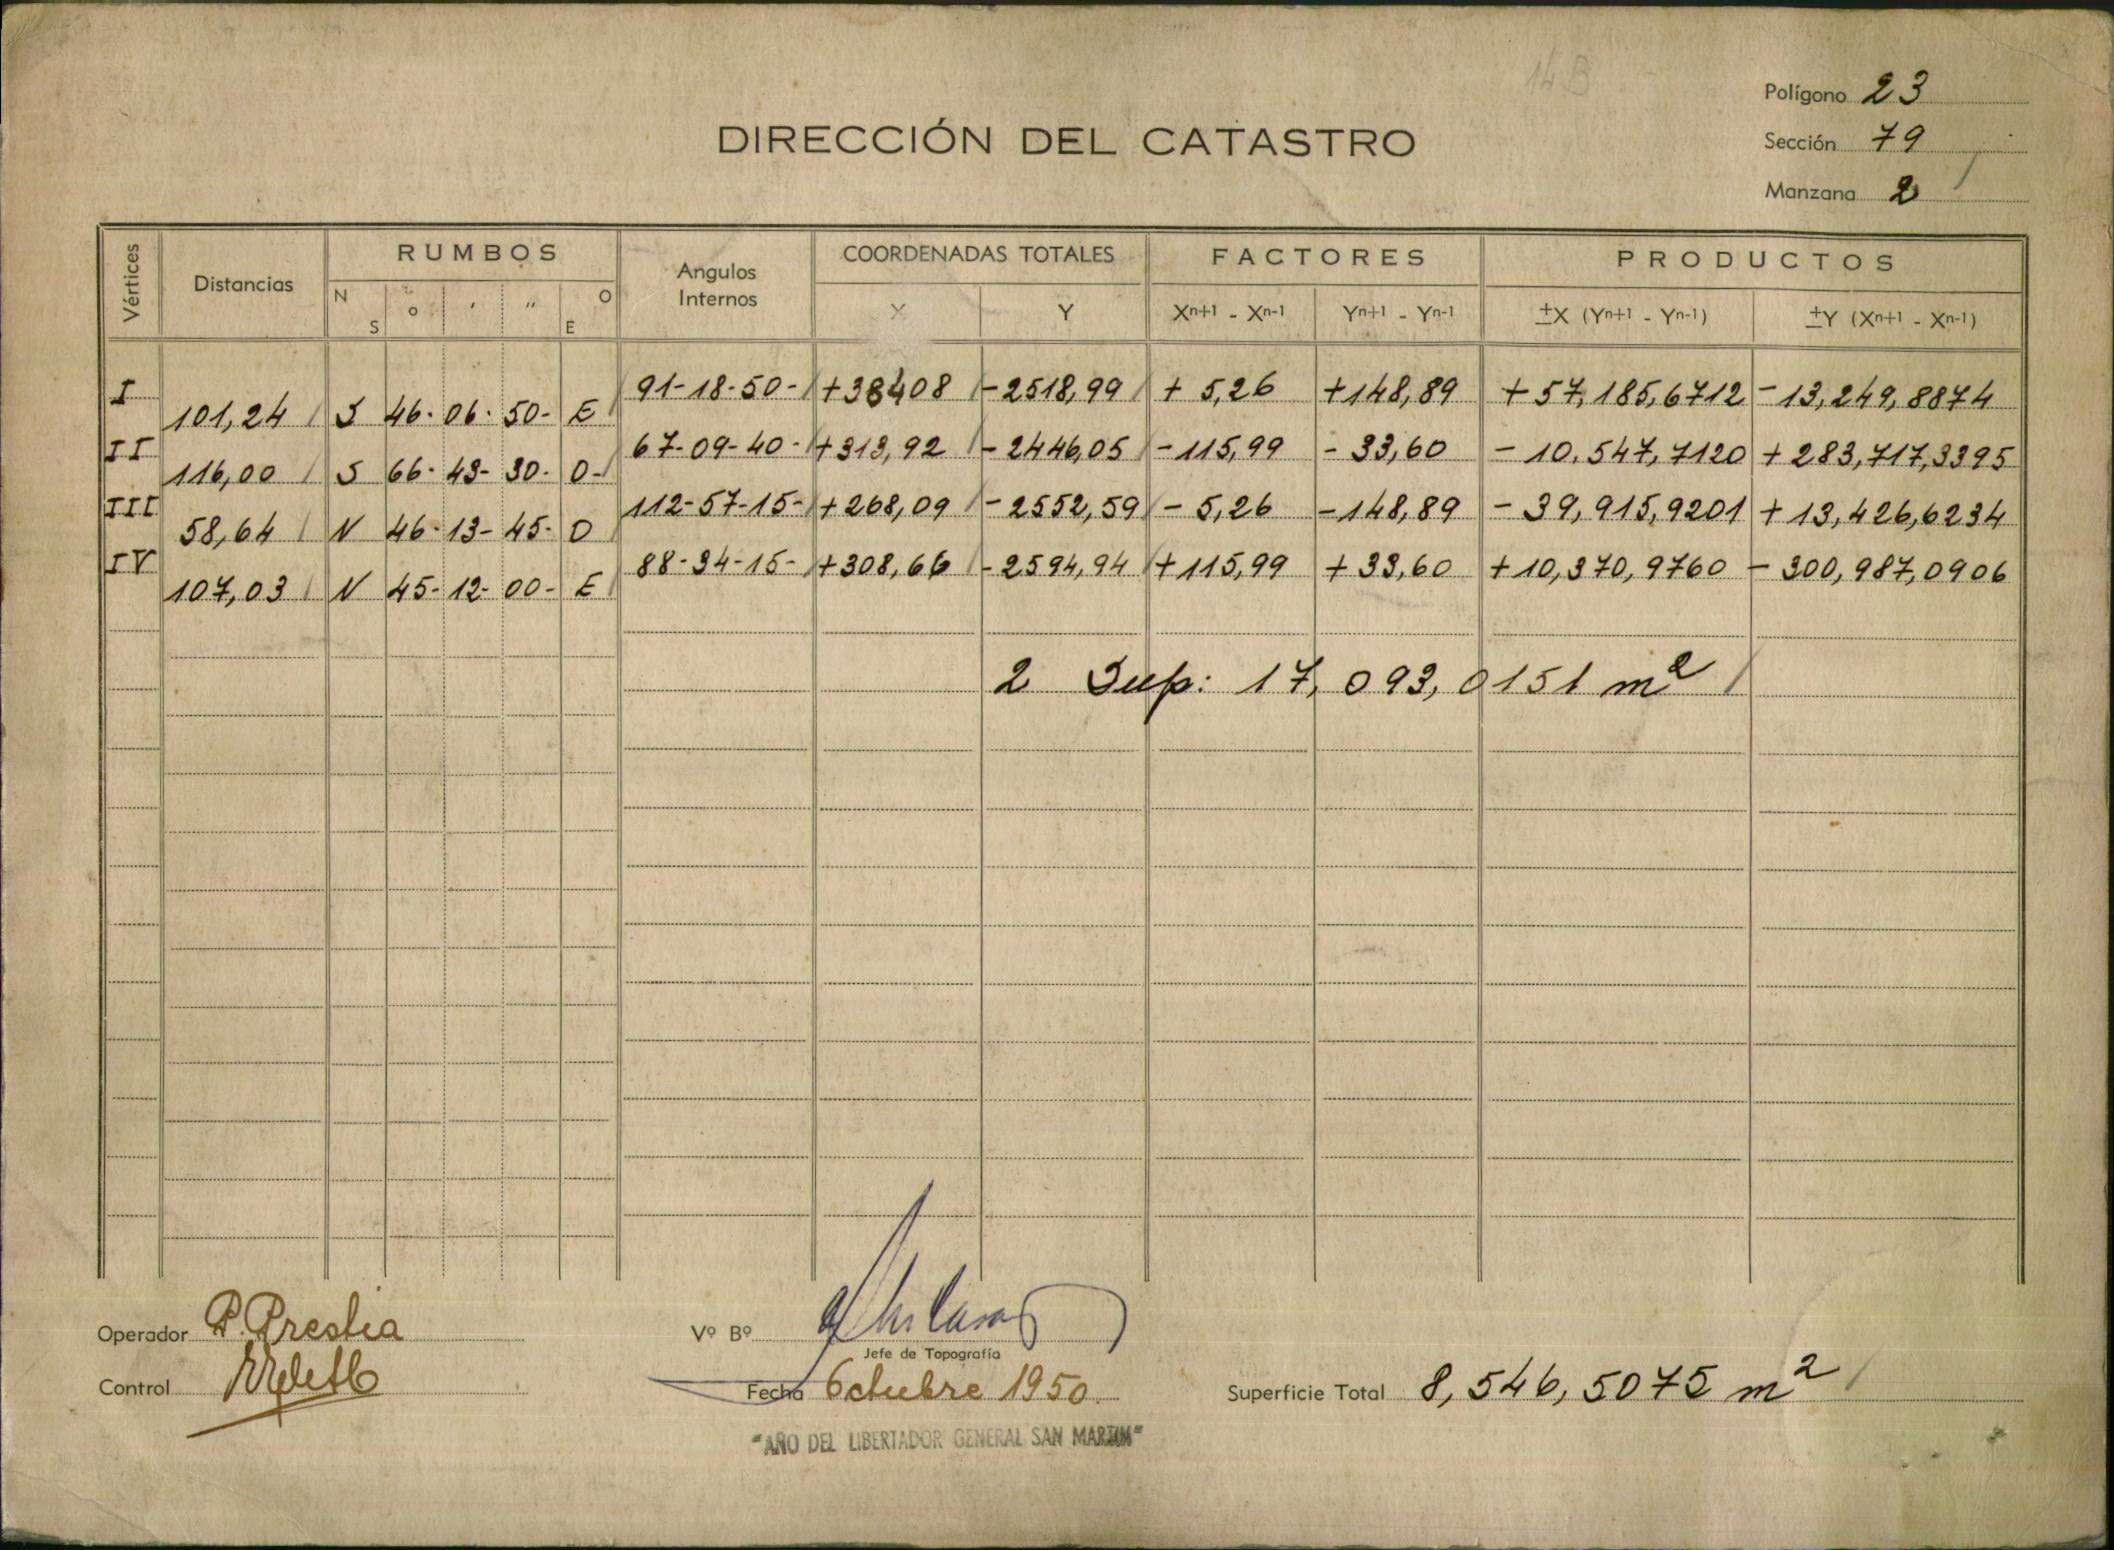 14 B
Polígono 23
DIRECCIÓN DEL CATASTRO
Sección 79
Manzana 2
Vértices Distancias RUMBOS Angulos Internos COORDENADAS TOTALES FACTORES PRODUCTOS
N S o ' " O E X Y Xn+1 - Xn-1 Yn+1 - Yn-1 ±X (Yn+1 - Yn-1) ±Y (Xn+1 - Xn-1)
I 91-18-50- +38408 -2518,99 + 5,26 +148,89 + 57,185,6712 - 13,249,8874
101,24 S 46- 06- 50- E
II 67-09-40- +313,92 -2446,05 -115,99 - 33,60 - 10.547,7120 + 283,717,3395
116,00 S 66- 43- 30- O-
III 112-57-15- +268,09 -2552,59 - 5,26 -148,89 - 39,915,9201 + 13,426,6234
58,64 N 46- 13- 45- O
IV 88-34-15- +308,66 -2594,94 +115,99 + 33,60 +10,370,9760 - 300,987,0906
107,03 N 45- 12- 00- E
2 Sup: 17,093,0151 m2
Operador P. Prestia
Vº Bº
Jefe de Topografía
Control
Fecha Octubre 1950.
Superficie Total 8,546,5075 m2
"AÑO DEL LIBERTADOR GENERAL SAN MARTIN"